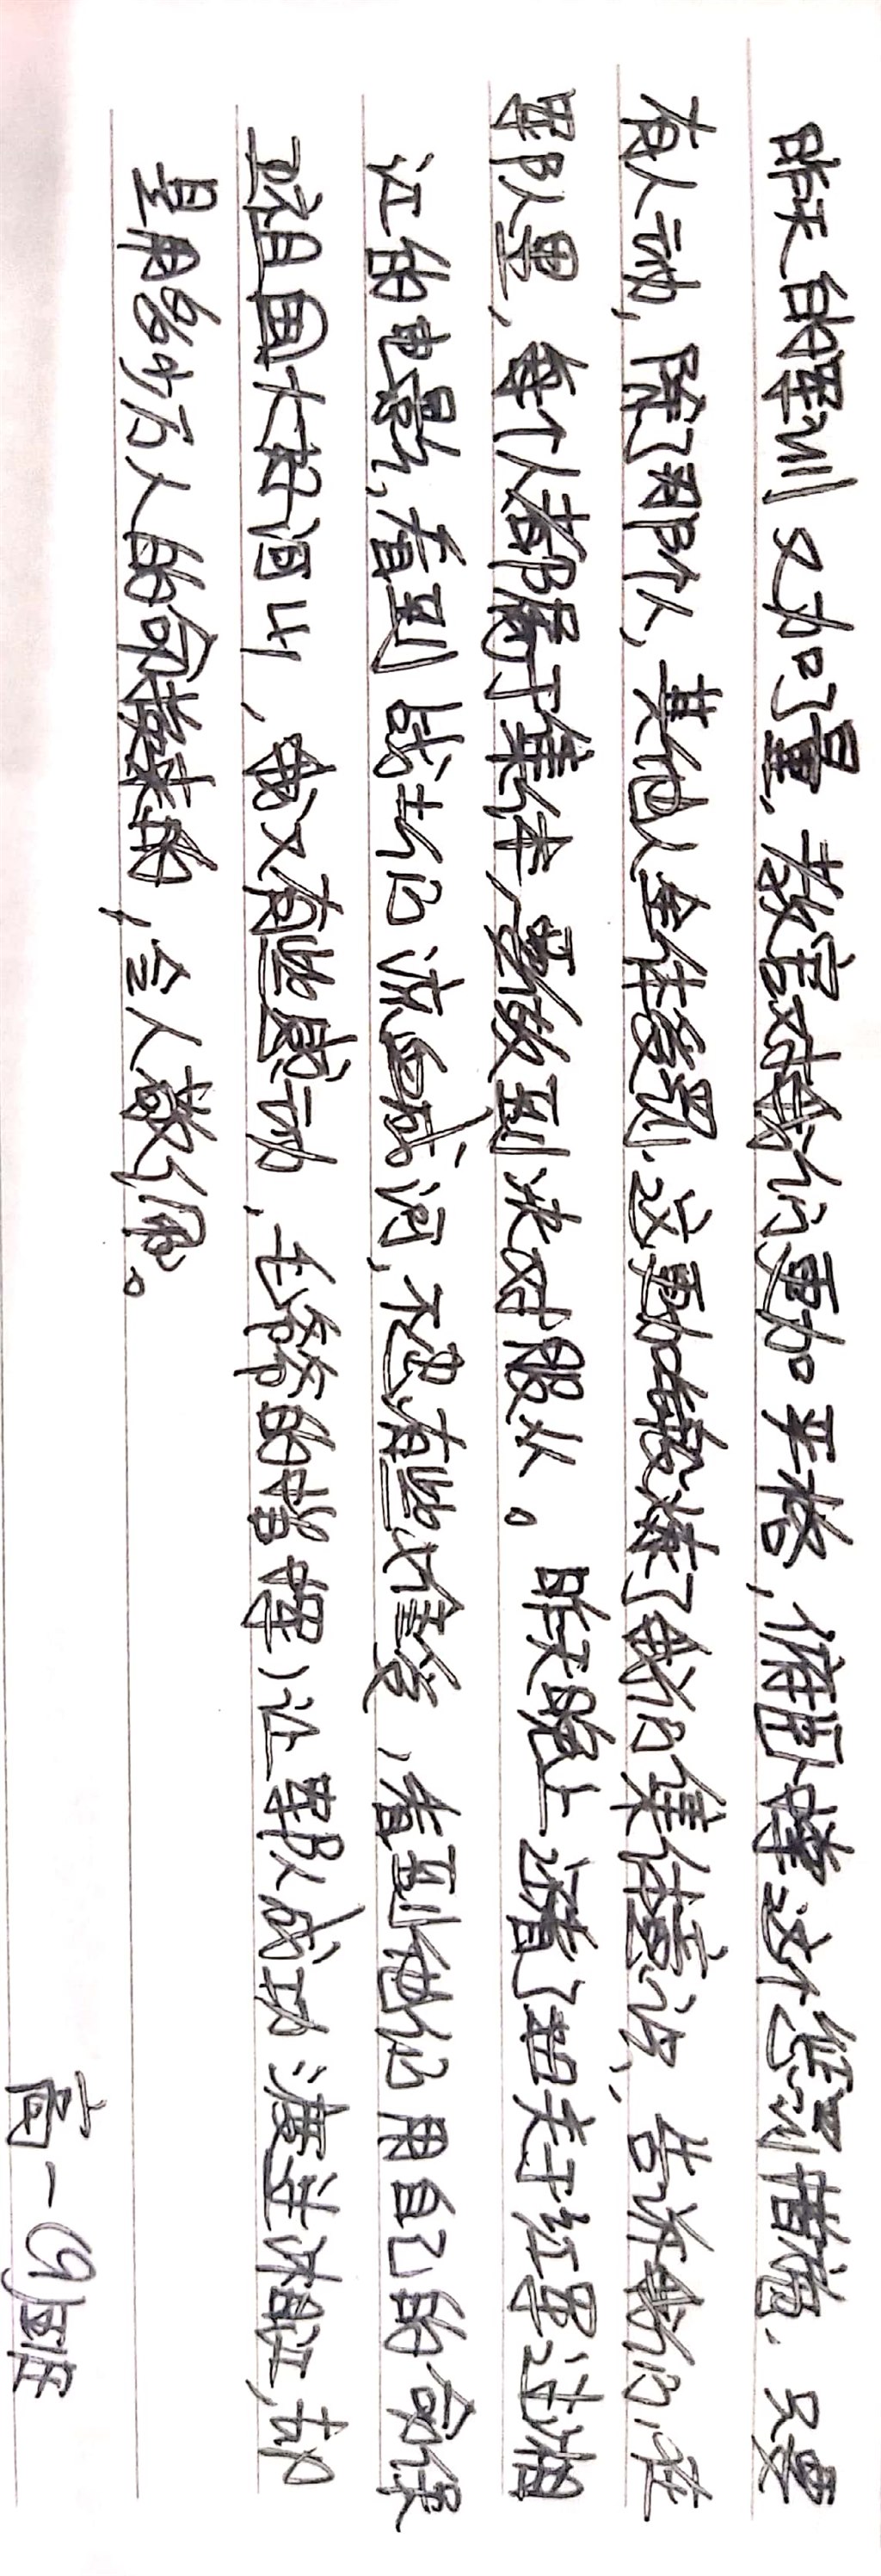 昨天的军训又加了量，教官对我们更加严格，俯卧撑这个惩罚措施，只要
有人动，除了那个人，其他人全体受罚，这更加锻炼了我们的集体意识，告诉我们，在
军队里，每个人都属于集体，要做到决对服从。昨天晚上还看了部关于红军过湘
江的电影，看到战士们流血成河，不忍有些难受，看到他们用自己的命保
卫祖国大好河山，我又有些感动，毛爷爷的指挥，让军队成功渡过湘江，却
是用多少万人的命换来的，令人敬佩。
高一9班